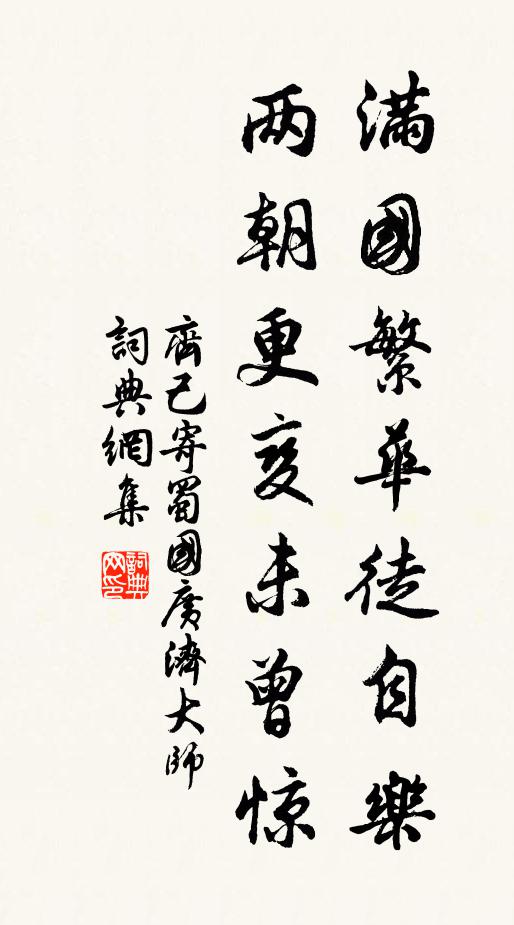 滿國繁華徒自樂
两朝更变未曾惊
齊己寄蜀國廣濟大師
詞典網集
詞典網印